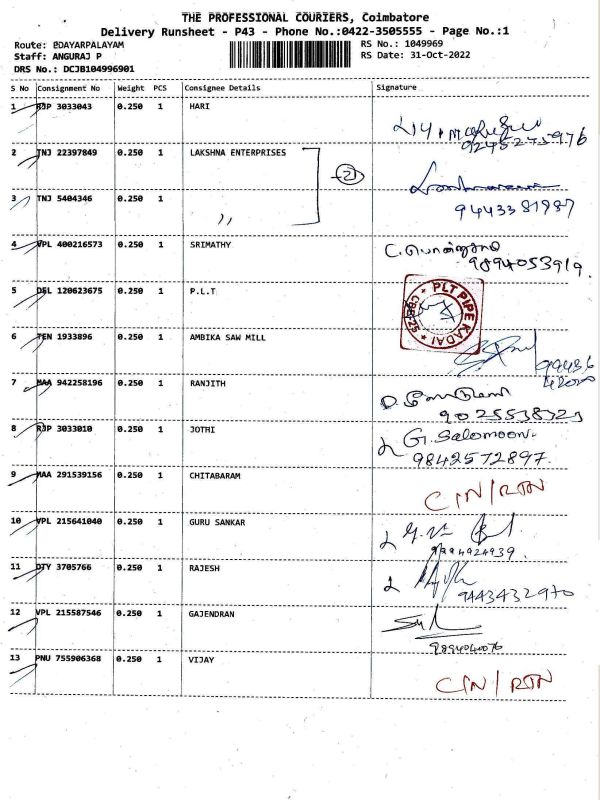 THE PROFESSIONAL COURIERS, Coimbatore
Delivery Runsheet - P43 - Phone No.:0422-3505555 - Page No.:1
Route: @DAYARPALAYAM
RS No.: 1049969
Staff: ANGURAJ P
RS Date: 31-Oct-2022
DRS No.: DCJB104996901
S No Consignment No Weight PCS Consignee Details Signature
1 RJP 3033043 0.250 1 HARI
9245275976
2 TNJ 22397849 0.250 1 LAKSHNA ENTERPRISES
3 TNJ 5404346 0.250 1 〃
9443381987
4 VPL 400216573 0.250 1 SRIMATHY
9894053919.
5 DEL 120623675 0.250 1 P.L.T
PLT PIPE KADAI
6 TEN 1933896 0.250 1 AMBIKA SAW MILL
99436
7 MAA 942258196 0.250 1 RANJITH
8 RJP 3033010 0.250 1 JOTHI G. Salomoon.
9842572897.
9 MAA 291539156 0.250 1 CHITABARAM CIN/RTN
10 VPL 215641040 0.250 1 GURU SANKAR
9994924939.
11 DTY 3705766 0.250 1 RAJESH
9443432970
12 VPL 215587546 0.250 1 GAJENDRAN
9894040076
13 PNU 755906368 0.250 1 VIJAY
CIN/RTN